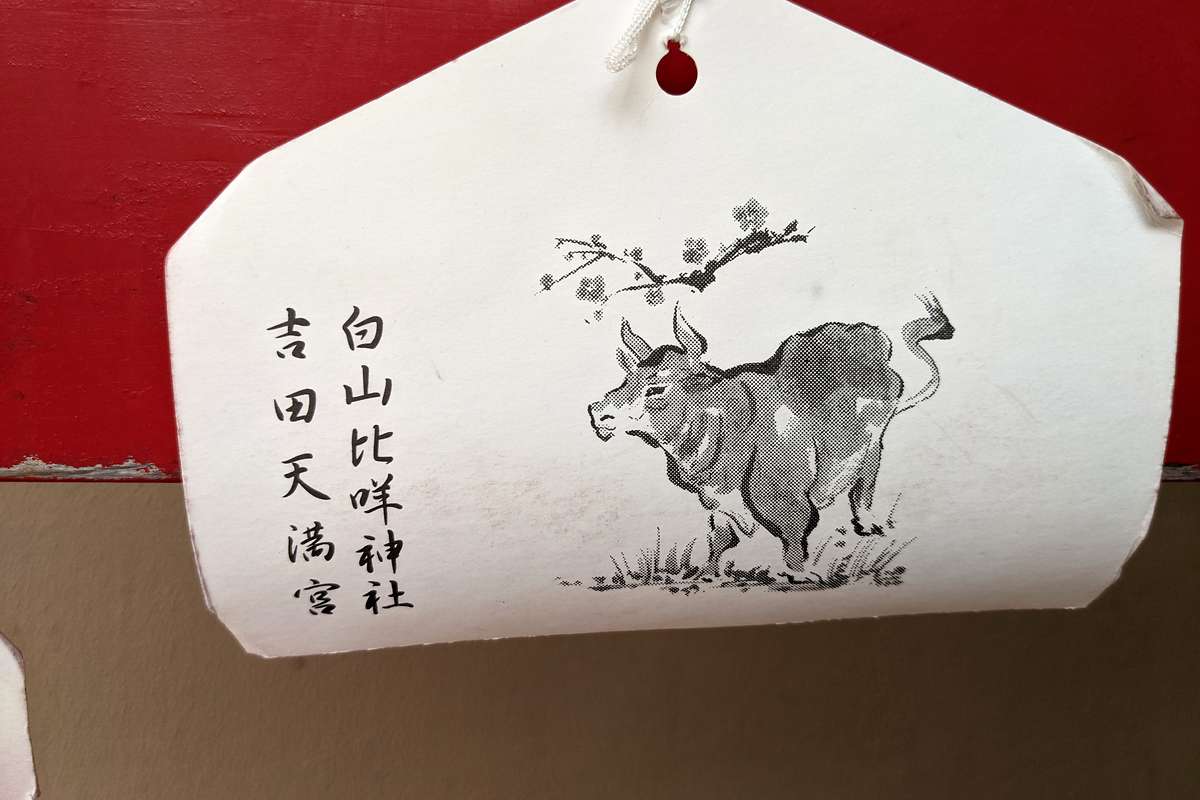 白山比咩神社
吉田天満宮